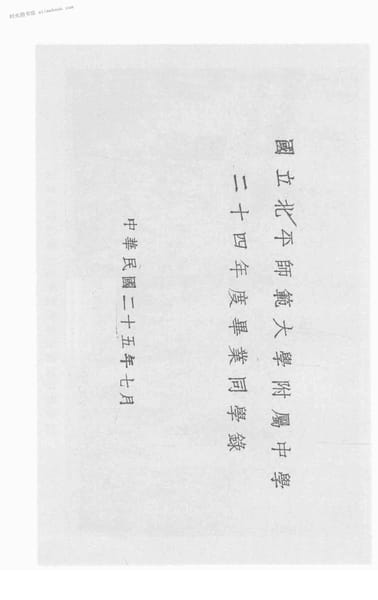 國立北平師範大學附屬中學
二十四年度畢業同學錄
中華民國二十五年七月